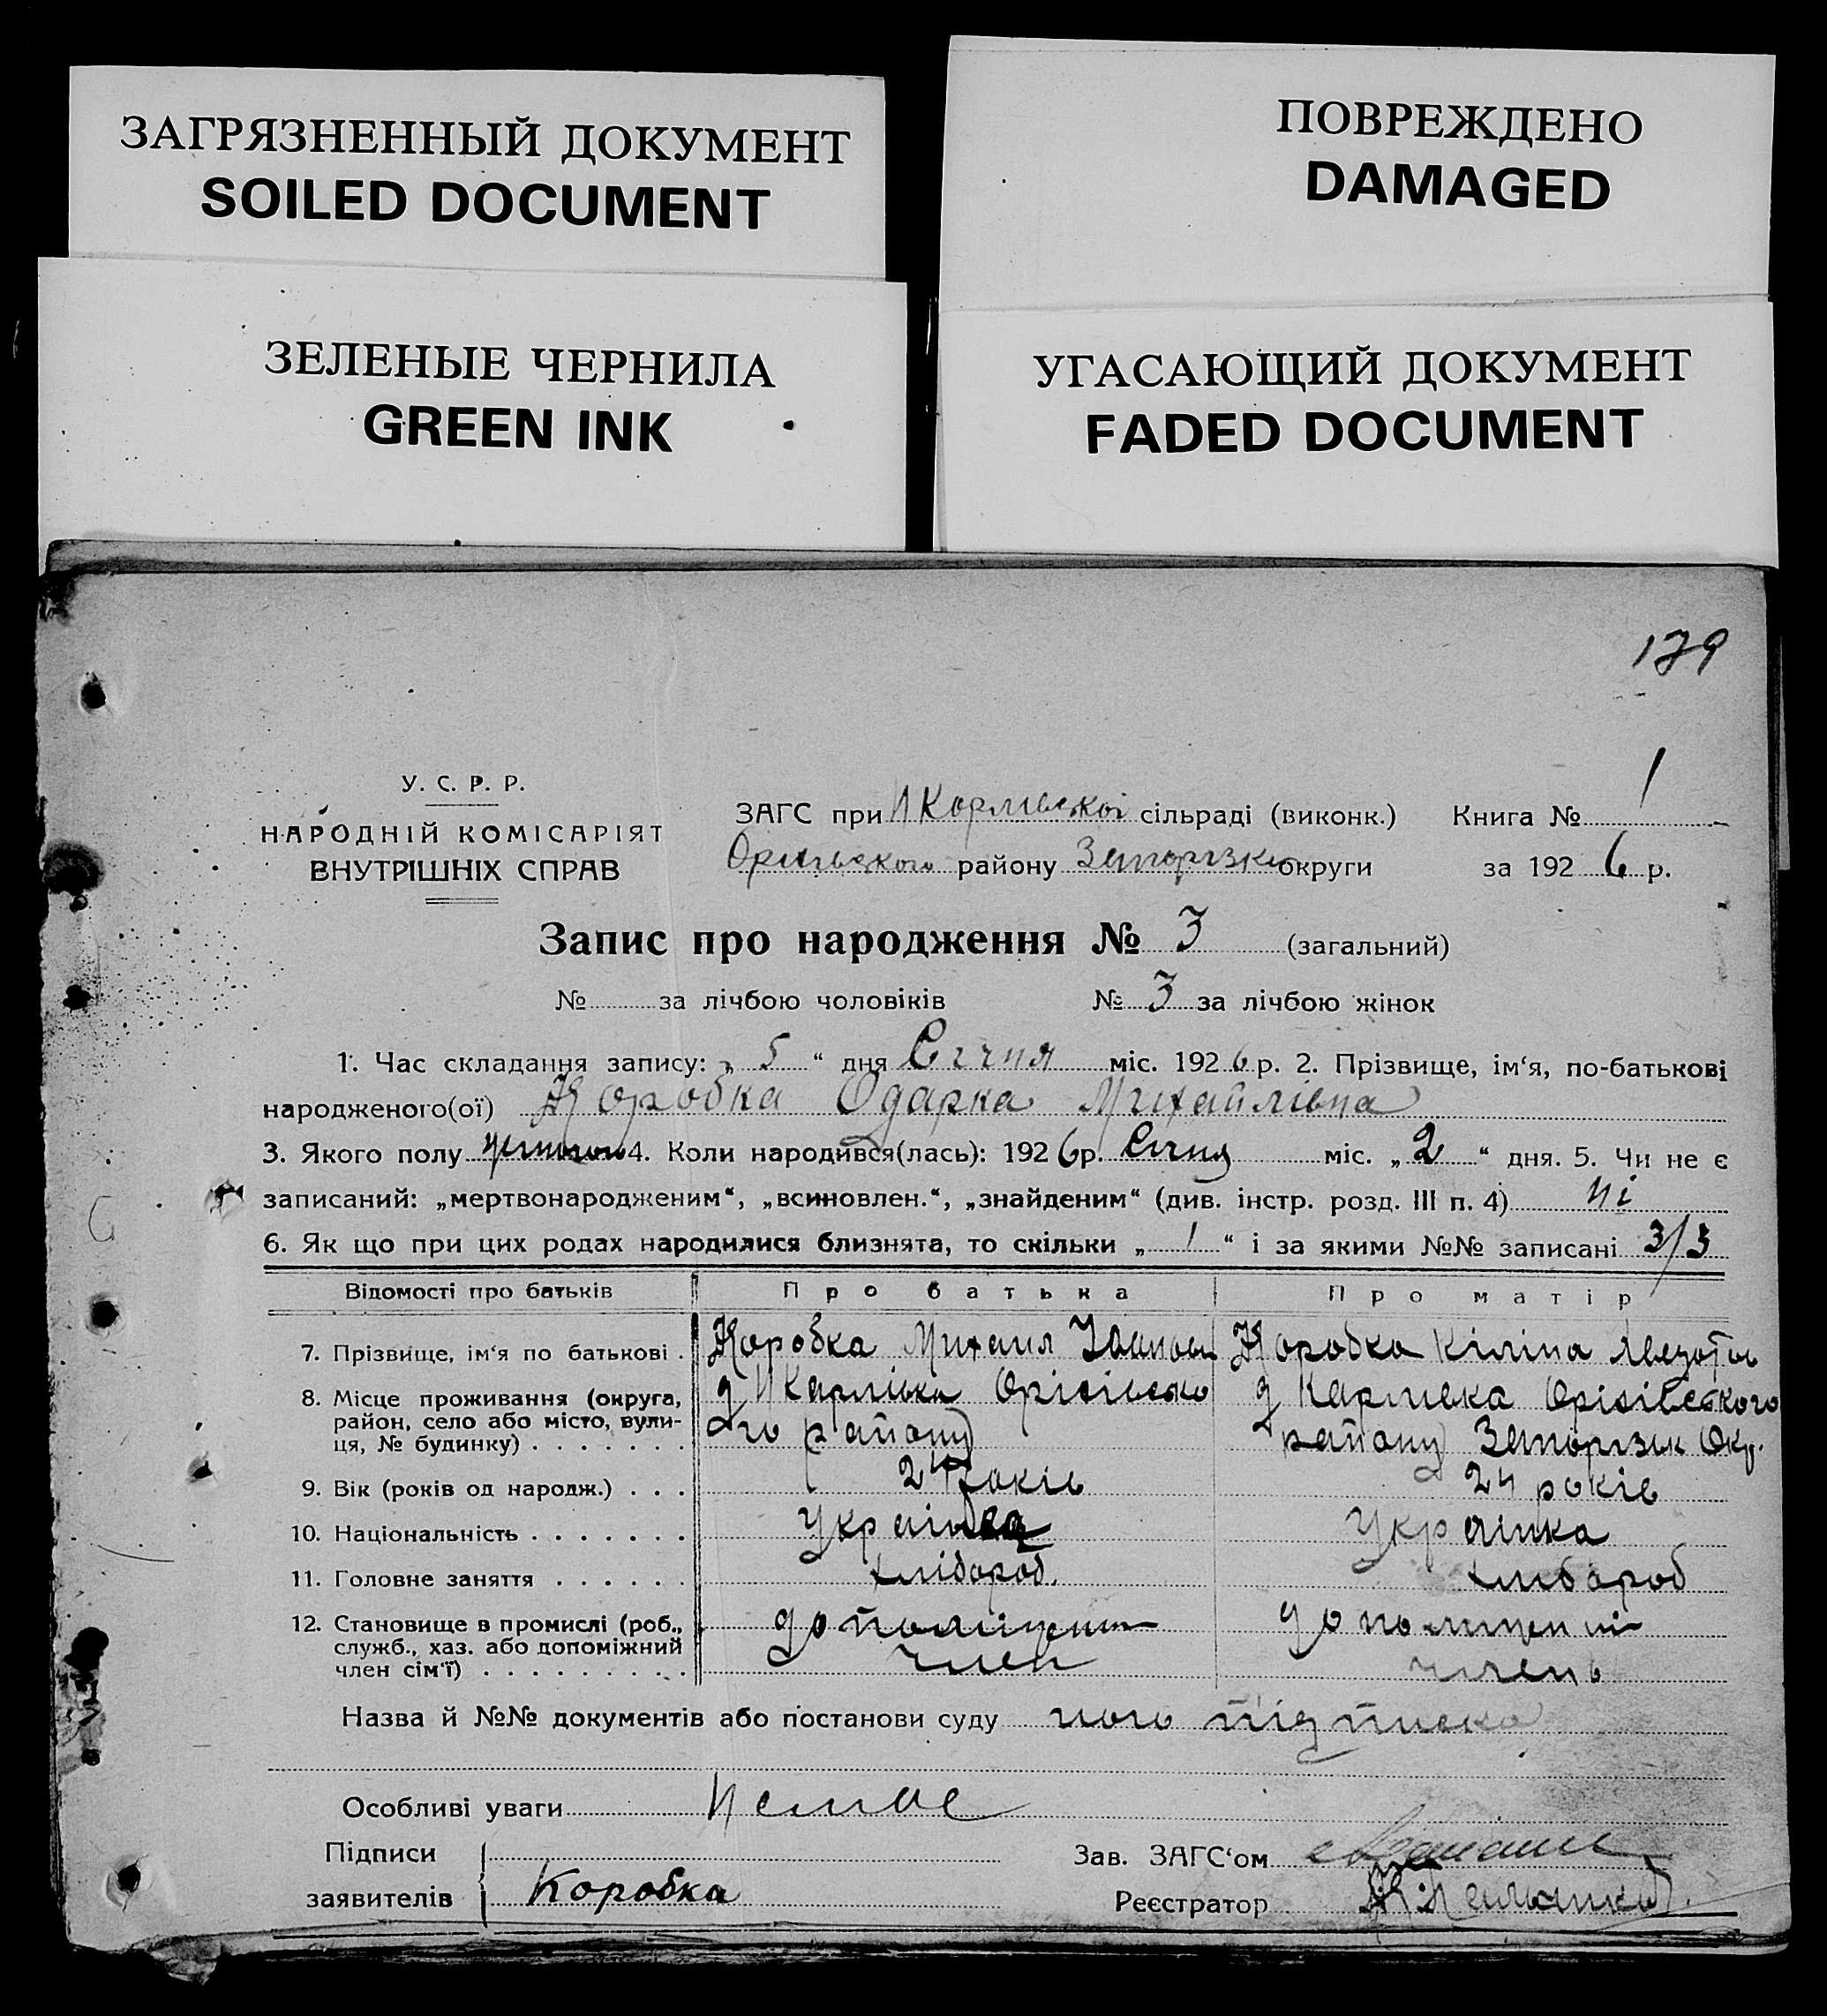 ЗАГРЯЗНЕННЫЙ ДОКУМЕНТ
SOILED DOCUMENT
ПОВРЕЖДЕНО
DAMAGED
ЗЕЛЕНЫЕ ЧЕРНИЛА
GREEN INK
УГАСАЮЩИЙ ДОКУМЕНТ
FADED DOCUMENT
179
У. С. Р. Р.
НАРОДНІЙ КОМІСАРІЯТ
ВНУТРІШНІХ СПРАВ
ЗАГС при Н Карлівскоі сільраді (виконк.) Книга № 1
району округи за 1926 р.
Запис про народження № 3 (загальний)
№ за лічбою чоловіків № 3 за лічбою жінок
1. Час складання запису: „ 5 “ дня Січня міс. 1926 р. 2. Прізвище, ім‘я, по-батькові
народженого(ої) Коробка Одарка Михайлівна
3. Якого полу 4. Коли народився(лась): 1926 р. Січня міс. „ 2 “ дня. 5. Чи не є
записаний: „мертвонародженим“, „всиновлен.“, „знайденим“ (див. інстр. розд. III п. 4) ні
6. Як що при цих родах народилися близнята, то скільки „ 1 “ і за якими №№ записані 3/3
Відомості про батьків Про батька Про матір
7. Прізвище, ім‘я по батькові . Коробка Михаил Іванов Коробка Кіліна
8. Місце проживання (округа, д Н Карлівка Оріхівсько д Карлівка Оріхівського
район, село або місто, вули- го району району Запорізьк Окр.
ця, № будинку) . . . . . . .
9. Вік (років од народж.) . . . 24 років 24 років
10. Національність . . . . . . . Українка
11. Головне заняття . . . . . . хлібороб. хлибороб
12. Становище в промислі (роб., допоміжни допомижни
служб., хаз. або допоміжний член член
член сім‘ї) . . . . . . . . .
Назва й №№ документів або постанови суду його підписка
Особливі уваги Немає
Підписи
заявителів Коробка
Зав. ЗАГС‘ом
Реєстратор